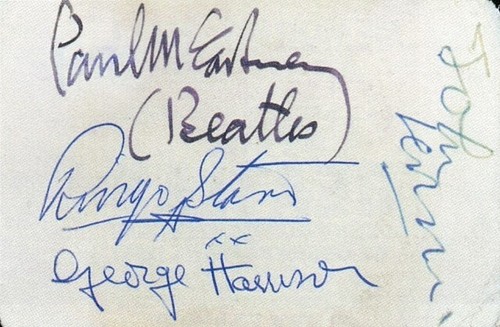 Paul McCartney
(Beatles)
Ringo Starr
xx
George Harrison
John
Lennon